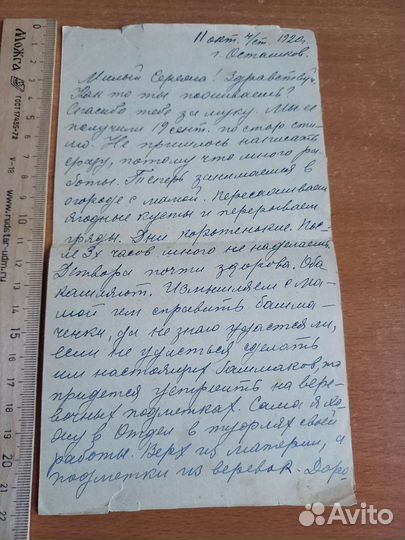 11 окт. н/ст. 1920г.
г. Осташков.
Милый Сережа! Здравствуй!
Как то ты поживаешь?
Спасибо тебе за муку. Мы ее
получили 19 сент. по стар. сти-
лю. Не пришлось написать
сразу, потому что много ра-
боты. Теперь занимаемся в
огороде с мамой. Пересаживаем
ягодные кусты и перерываем
гряды. Дни коротенькие. Пос-
ле 3х часов много не наделаешь.
Детвора почти здорова. Оба
кашляют. Измышляем с ма-
мой им справить башма-
ченки, да не знаю удастся ли,
если не удасться сделать
им настоящих башмаков, то
придется устроить на вере-
вочных подметках. Сама я хо-
жу в Отдел в туфлях своей
работы. Верх из материи, а
подметки из веревок. Доро
Можга
ГОСТ 17435-72
Avito